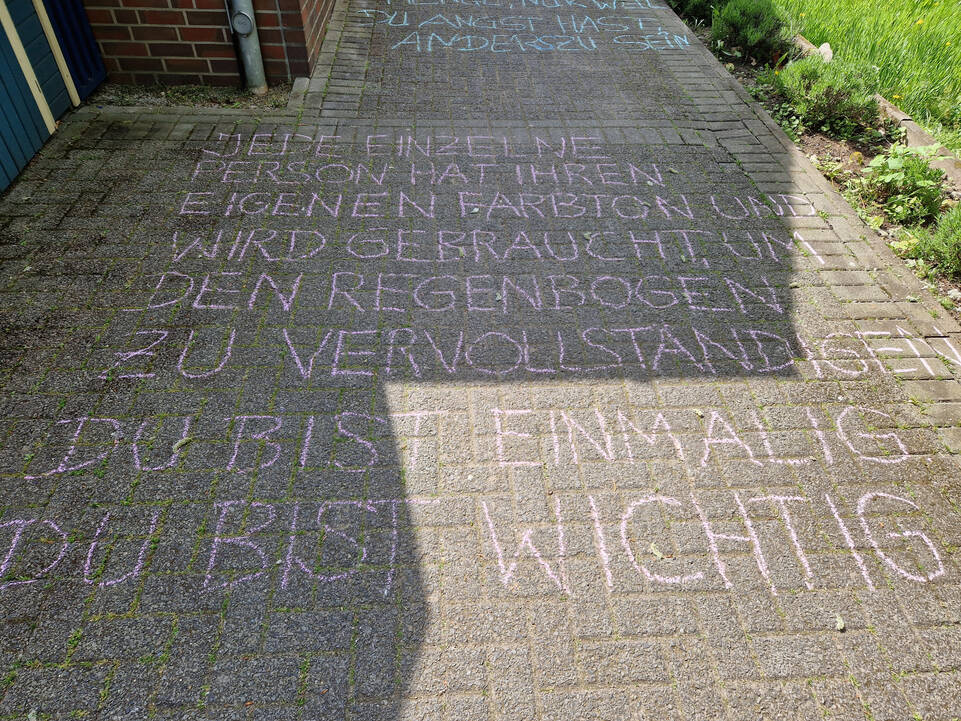 NUR WEIL
DU ANGST HAST,
ANDERS ZU SEIN
JEDE EINZELNE
PERSON HAT IHREN
EIGENEN FARBTON UND
WIRD GEBRAUCHT, UM
DEN REGENBOGEN
ZU VERVOLLSTÄNDIGEN
DU BIST EINMALIG
DU BIST WICHTIG